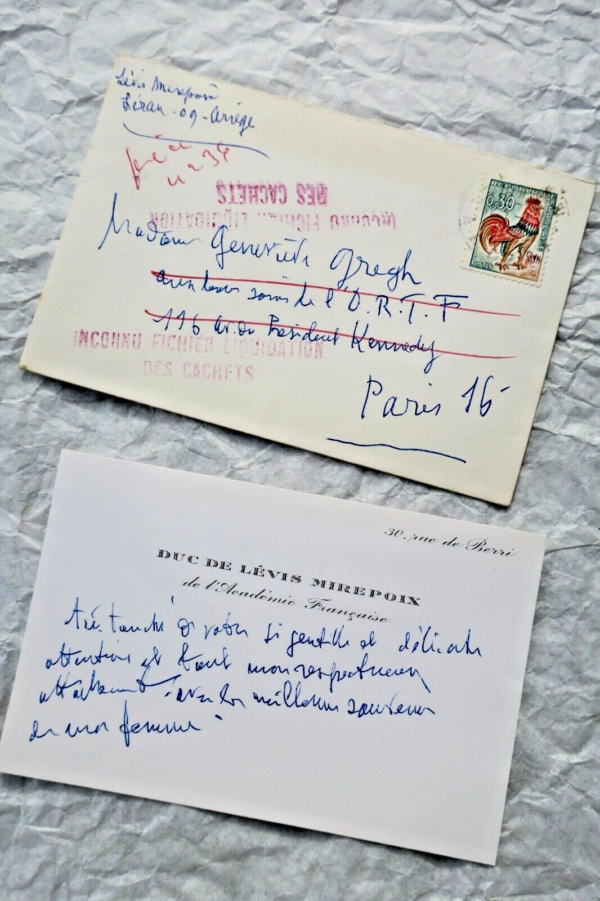 Lévis Mirepoix
Léran-09-Ariège
n° 34
0,30
INCONNU FICHIER LIQUIDATION
DES CACHETS
Madame Geneviève Gregh
aux bons soins de l'O.R.T.F
116 av. du Président Kennedy
INCONNU FICHIER LIQUIDATION
DES CACHETS
Paris 16
30, rue de Berri
DUC DE LÉVIS MIREPOIX
de l'Académie Française
très touché de votre si gentille et délicate
attention et tout mon respectueux
attachement avec les meilleurs souvenirs
de ma femme